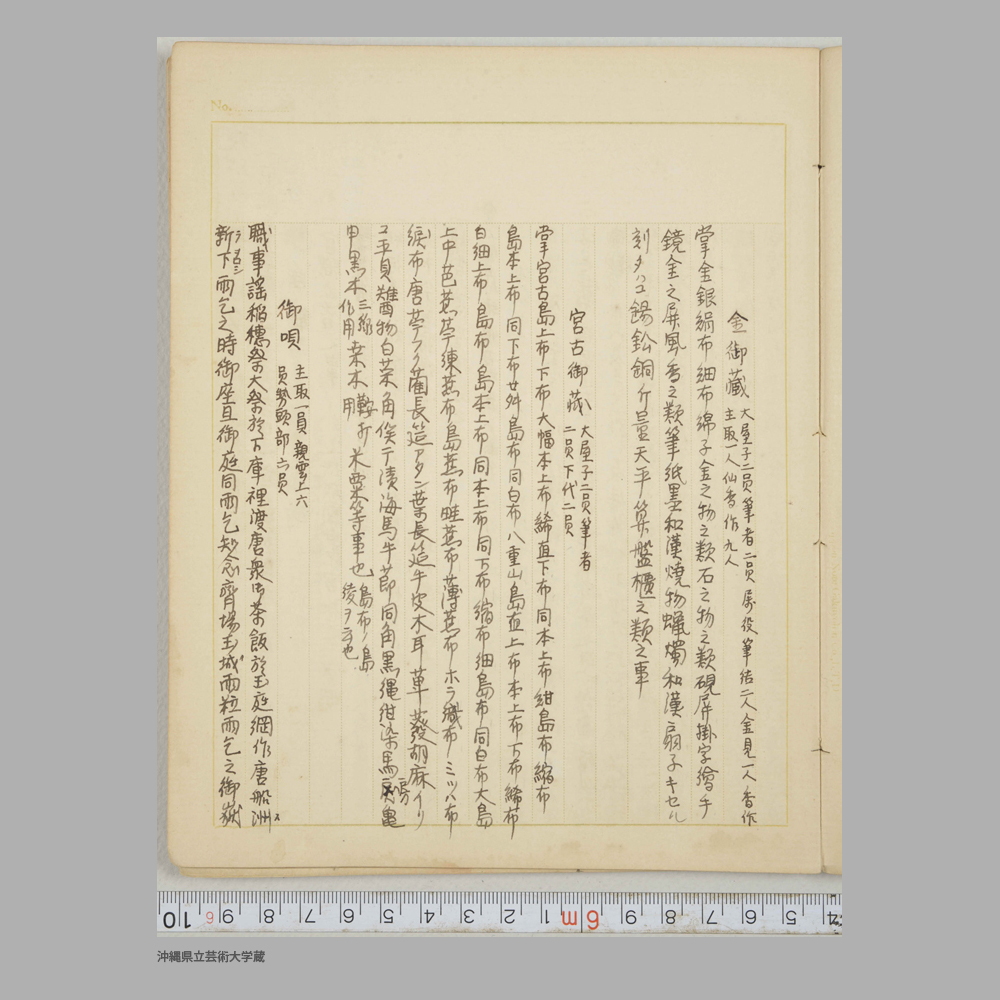 No.
金御蔵 大屋子二員筆者二員属役筆結二人金見一人香作
主取一人仙香作九人
掌金銀絹布細布綿子金之物之類石之物之類硯屏掛字繪手
鏡金之屏風香之類筆紙墨和漢焼物蠟燭和漢扇子キセル
刻タハコ錫鉛銅斤量天平算盤櫃之類之事
宮古御蔵 大屋子二員筆者
二員下代二員
掌宮古島上布下布大幅本上布綿直下布同本上布紺島布縮布
島本上布同下布廿舛島布同白布八重山島直上布本上布下布綿布
白細上布島布島本上布同本上布同下布縮布細島布同白布大島
上中芭蕉苧練蕉布島蕉布畦蕉布薄蕉布ホラ織布ミツハ布
綟布唐苧クリ藺長筵アタン葉長筵牛皮木耳草蓽蕟胡麻イリ
コ平貝雑物白菜角俣テ漬海馬牛莭同角黒縄紺染馬尾亀
甲黒木三線作用桑木鞍用打米粟等事也島布ノ島綾ヲ云也
御唄 主取一員親雲上六
員勢頭部六員
職事謡稲穂祭大祭於下庫裡渡唐衆御茶飯於玉庭綱作唐船洲ス
ラ浮シ
新下雨乞之時御座且御庭同雨乞知念齊場玉城雨粒雨乞之御嶽
10 6 9 8 7 6 5 4 3 2 1 6m 9 8 7 6 5 4
沖縄県立芸術大学蔵